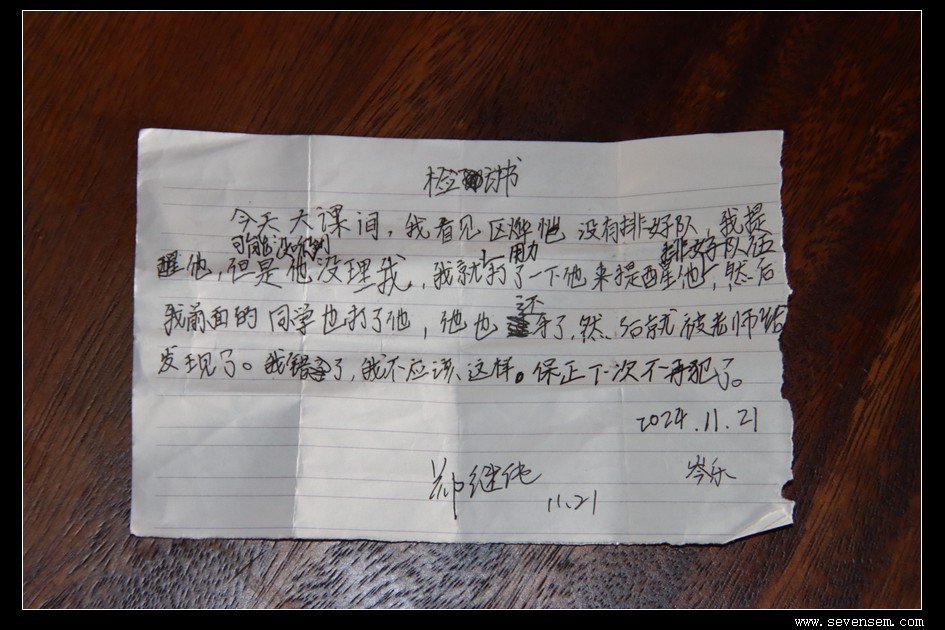 检讨书
今天大课间，我看见区烨彪没有排好队，我提
可能没听到
醒他，但是他没理我，我就打了一下他来提醒他，然后
用力
排好队伍
我前面的同学也打了他，他也还手了，然后就被老师给
发现了。我错了，我不应该这样。保证下次不再犯了。
2024.11.21
郑继纯
岑乐
11.21
www.sevensem.com